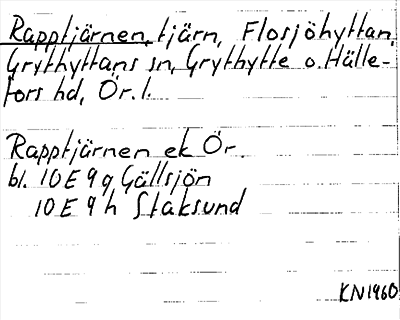 Rapptjärnen, tjärn, Flosjöhyttan,
Grythyttans sn, Grythytte o. Hälle-
fors hd, Ör. l.
Rapptjärnen ek Ör.
bl. 10E9g Gällsjön
10E9h Staksund
KN1960